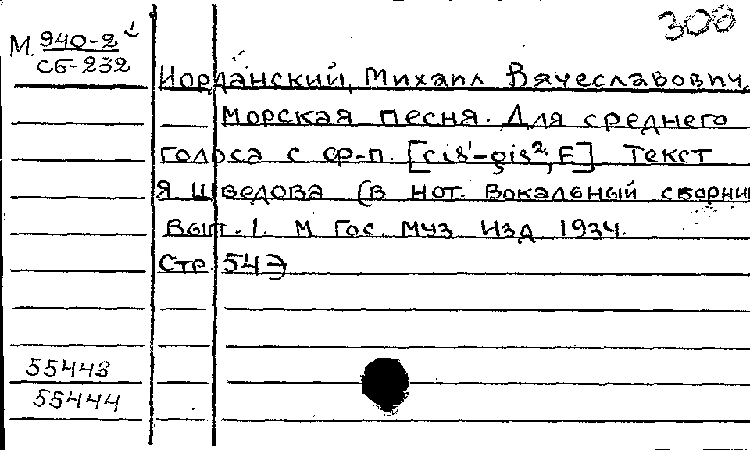 308
М. 940-2
СБ-232
Иорданский, Михаил Вячеславович
Морская песня. Для среднего
голоса с ф-п. [cis¹-gis², E] Текст
Я Шведова (в нот. Вокальный сборник
Вып. 1. М Гос Муз Изд 1934.
Стр 54)
55443
55444